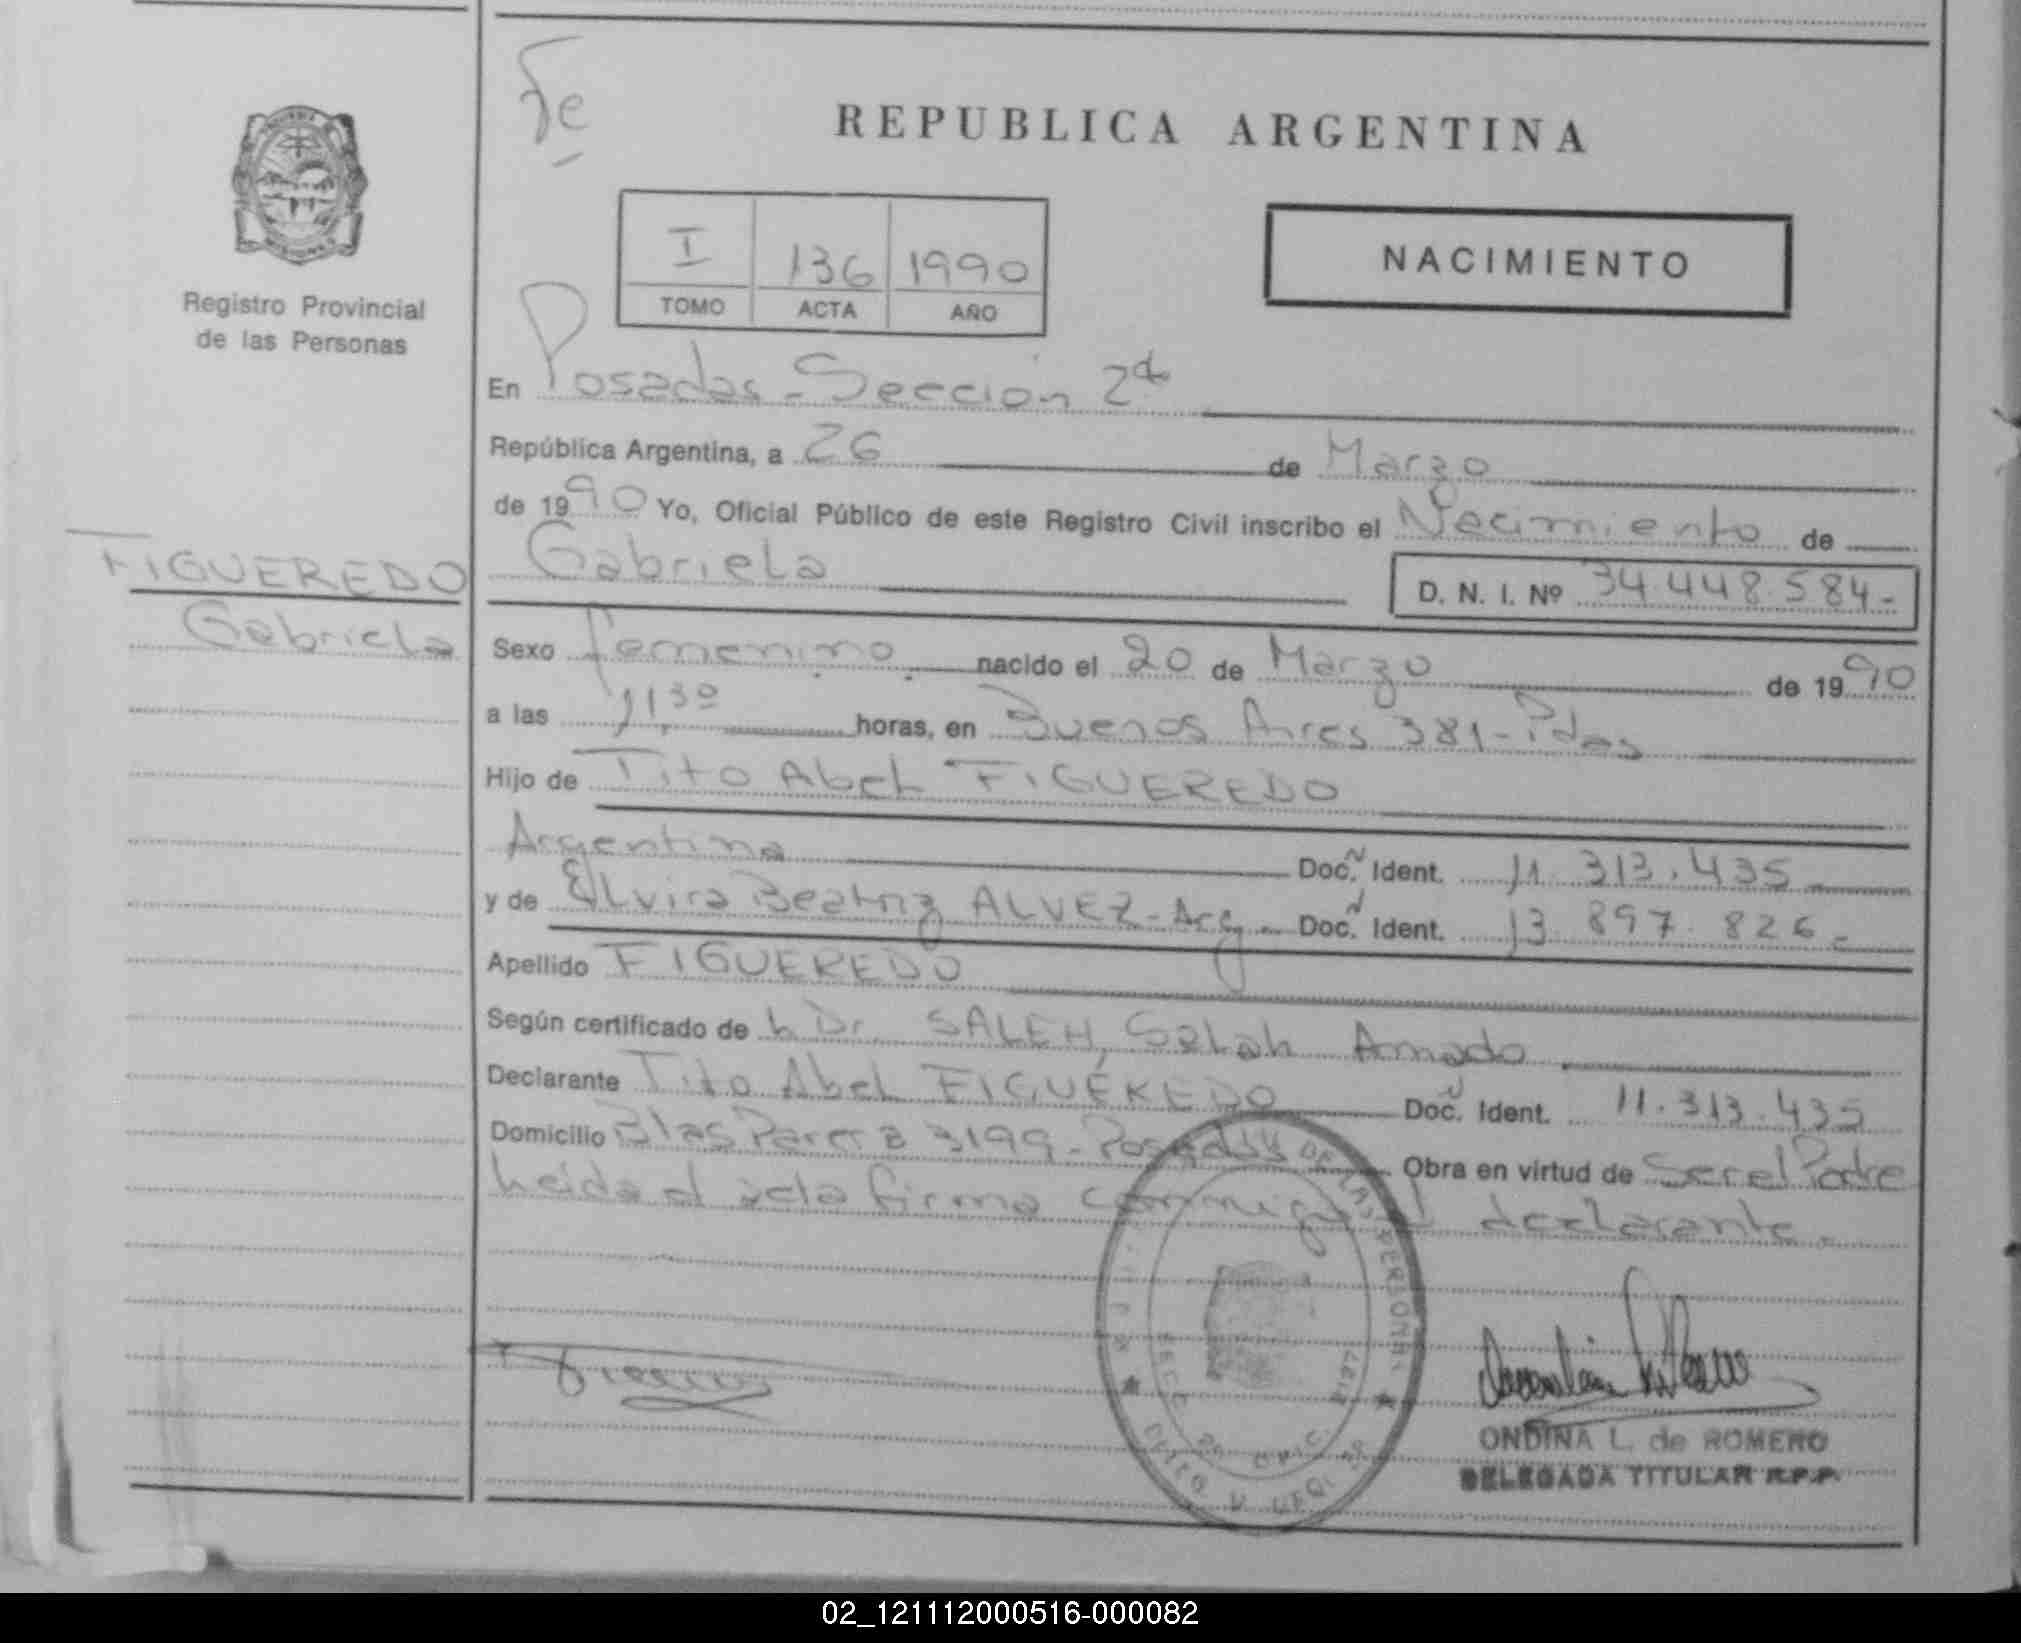 Fe
REPUBLICA ARGENTINA
I 136 1990
TOMO ACTA AÑO
NACIMIENTO
Registro Provincial
de las Personas
En Posadas - Sección 2da
República Argentina, a 26 de Marzo
de 1990 Yo, Oficial Público de este Registro Civil inscribo el Nacimiento de
Gabriela D. N. I. Nº 34.448.584-
FIGUEREDO
Gabriela
Sexo femenino. nacido el 20 de Marzo de 1990
a las 11 30 horas, en Buenos Aires 381 - Pdas
Hijo de Tito Abel FIGUEREDO
Argentina Doc. Ident. 11.313.435-
y de Elvira Beatriz ALVEZ - Arg. Doc. Ident. 13.897.826-
Apellido FIGUEREDO
Según certificado de L Dr. SALEH, Salah Amado
Declarante Tito Abel FIGUEREDO Doc. Ident. 11.313.435
Domicilio Blas Parera 3199 - Posadas Obra en virtud de Ser el Padre
Leida el acta firma conmigo el declarante.
DE LAS PERSONAS
ONDINA L. de ROMERO
DELEGADA TITULAR R.P.P.
02_121112000516-000082